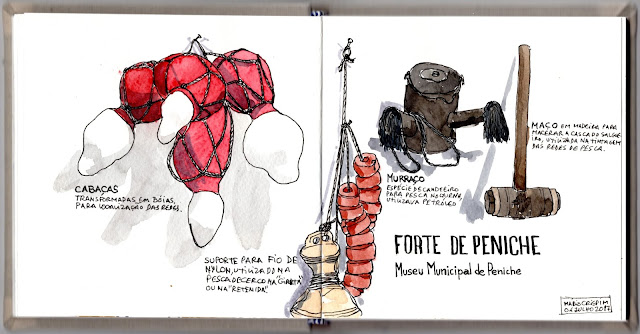 CABAÇAS
TRANSFORMADAS EM BÓIAS,
PARA LOCALIZAÇÃO DAS REDES.
SUPORTE PARA FIO DE
NYLON, UTILIZADO NA
PESCA DE CERCO NA "GIRATA"
OU NA "RETENIDA".
MURRAÇO
ESPÉCIE DE CANDEEIRO
PARA PESCA NOCTURNA,
UTILIZAVA PETRÓLEO
MAÇO EM MADEIRA PARA
MACERAR A CASCA DO SALGUEI
RO, UTILIZADA NA TINTAGEM
DAS REDES DE PESCA.
FORTE DE PENICHE
MUSEU MUNICIPAL DE PENICHE
JULHO 2017